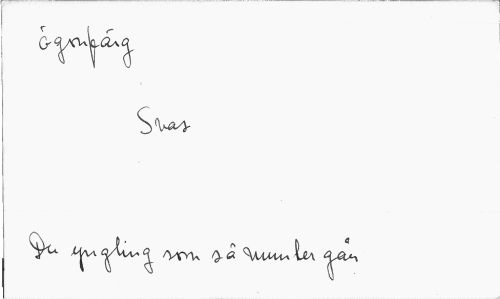 ögonfärg
Svas
Du yngling som så munter går